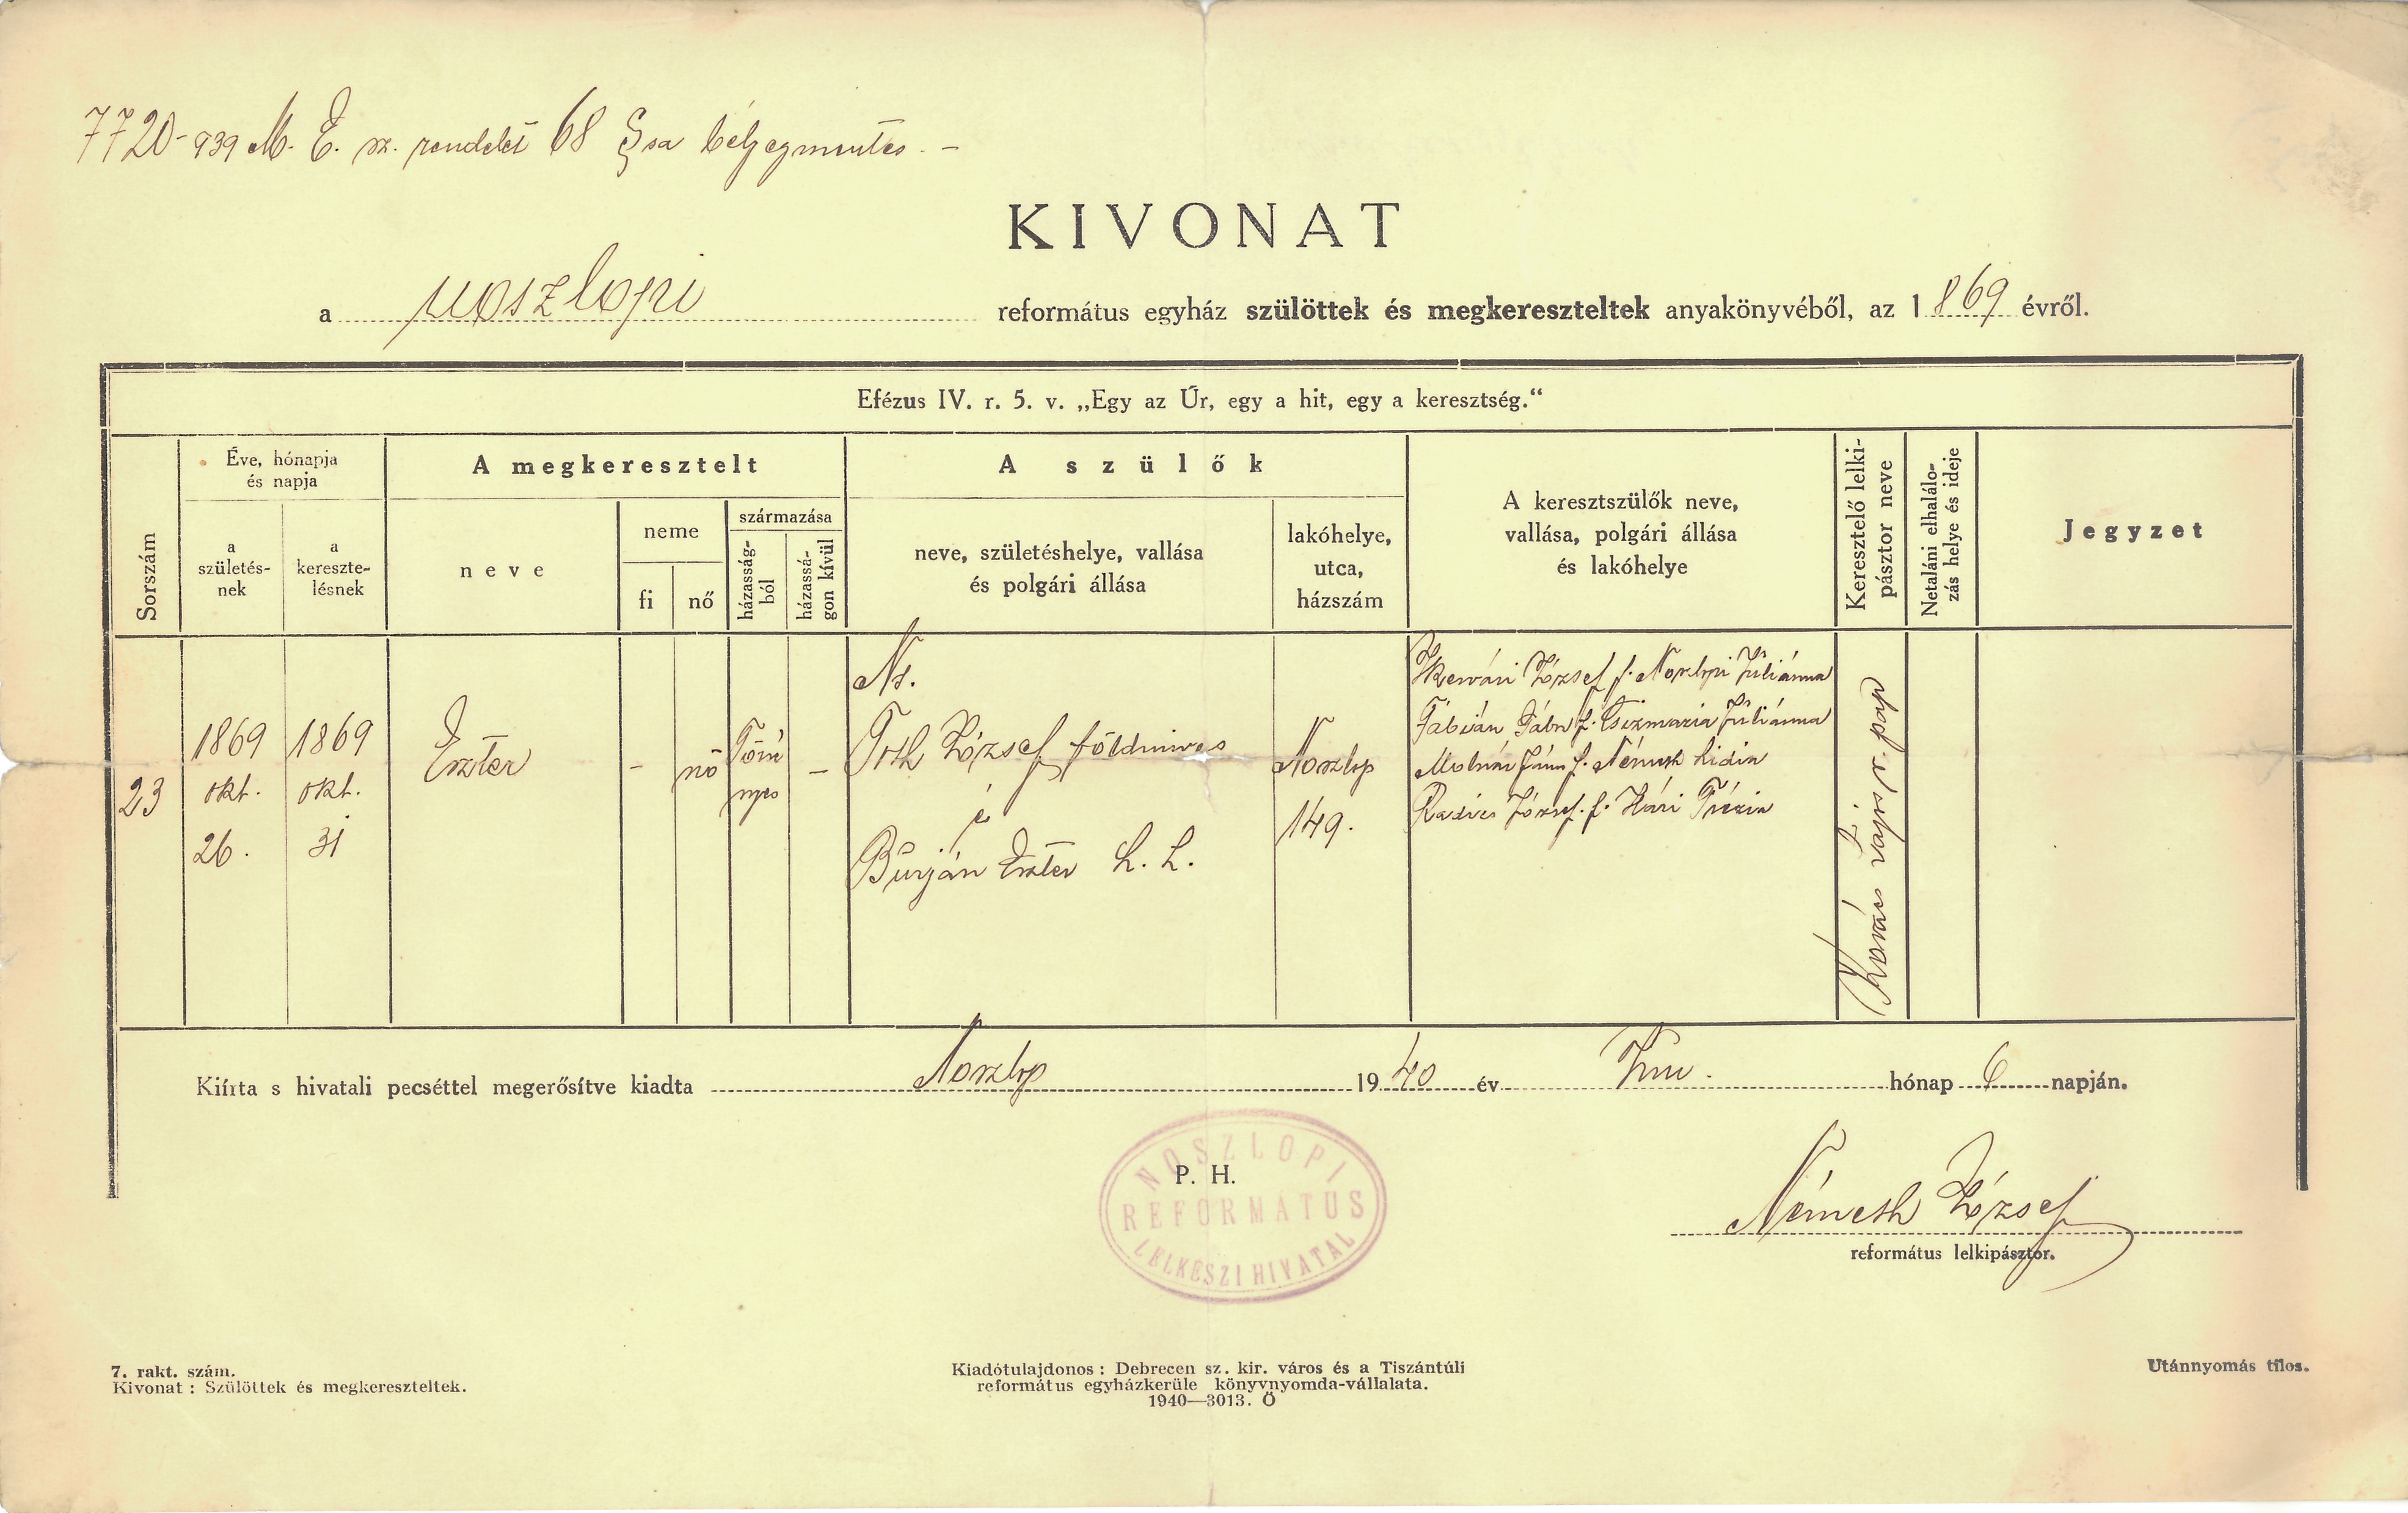 7720-939 M. E. sz. rendelet 68 §sa bélyegmentes. –
KIVONAT
a noszlopi református egyház szülöttek és megkereszteltek anyakönyvéből, az 1869 évről.
Efézus IV. r. 5. v. „Egy az Úr, egy a hit, egy a keresztség.“
Sorszám
Éve, hónapja
és napja
a
születés-
nek
a
keresztе-
lésnek
A megkeresztelt
neve
neme
fi
nő
származása
házasság-
ból
házassá-
gon kívül
A szülők
neve, születéshelye, vallása
és polgári állása
lakóhelye,
utca,
házszám
A keresztszülők neve,
vallása, polgári állása
és lakóhelye
Keresztelő lelki-
pásztor neve
Netaláni elhalálo-
zás helye és ideje
Jegyzet
23
1869
okt.
26.
1869
okt.
31
Eszter
–
nő
Törvé
nyes
–
Ns.
Tóth József földmives
é
Burján Eszter h. h.
Noszlop
149.
József f. Noszlopi Juliánna
Fábián Gábor f. Csizmazia Juliánna
Molnár János f. Németh Lidia
József f. Terézia
Kovács r. pap
Kiírta s hivatali pecséttel megerősítve kiadta Noszlop 1940 év hónap 6 napján.
P. H.
NOSZLOPI
REFORMÁTUS
LELKÉSZI HIVATAL
Németh József
református lelkipásztor.
7. rakt. szám.
Kivonat : Szülöttek és megkereszteltek.
Kiadótulajdonos : Debrecen sz. kir. város és a Tiszántúli
református egyházkerüle könyvnyomda-vállalata.
1940—3013. Ö
Utánnyomás tilos.